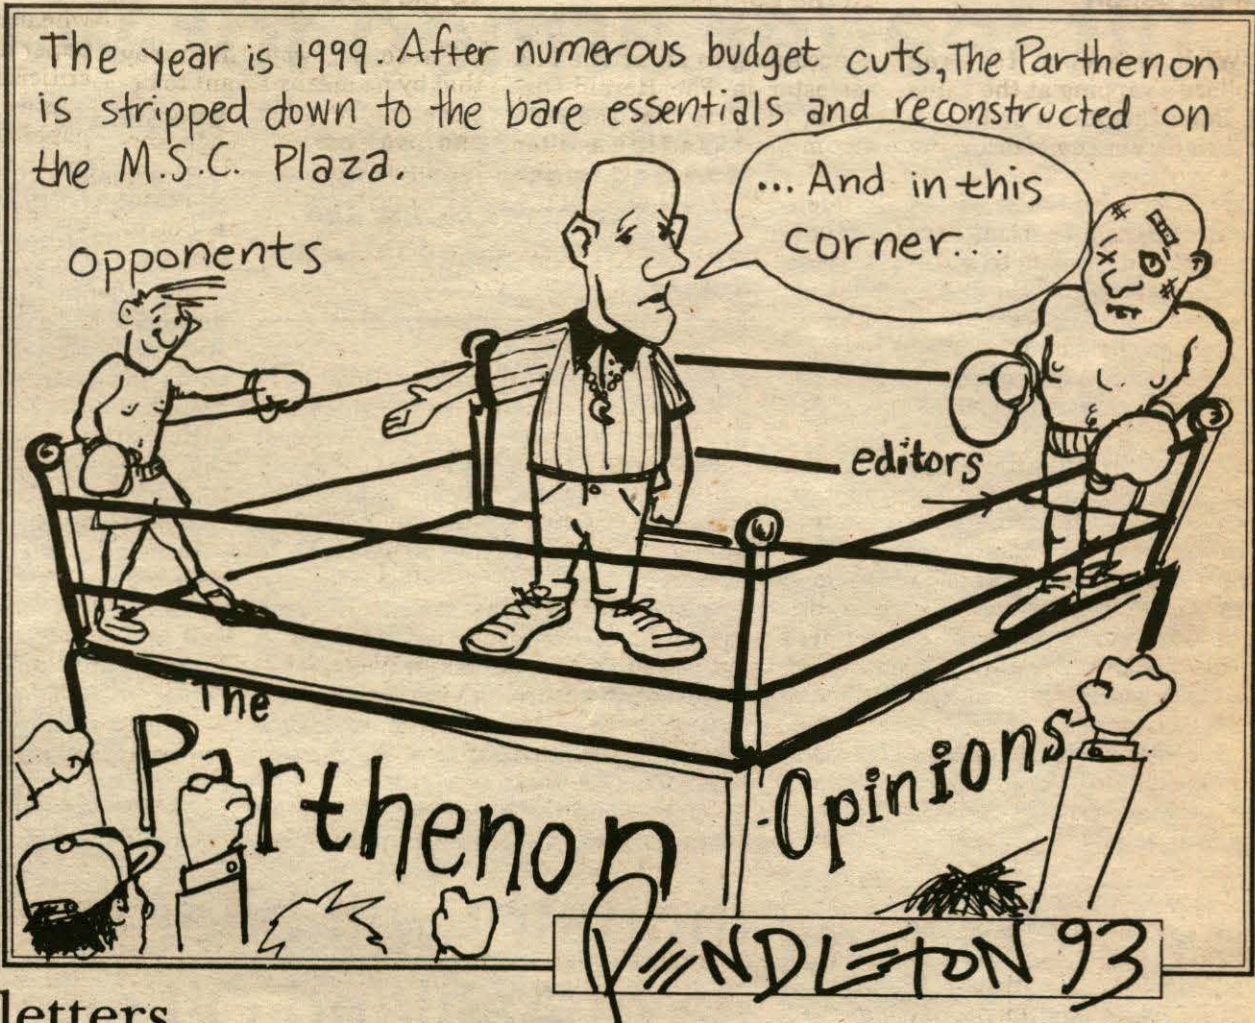 The year is 1999. After numerous budget cuts, The Parthenon
is stripped down to the bare essentials and reconstructed on
the M.S.C. Plaza.
... And in this
corner...
opponents
editors
The
Parthenon
Opinions
PENDLETON 93
letters